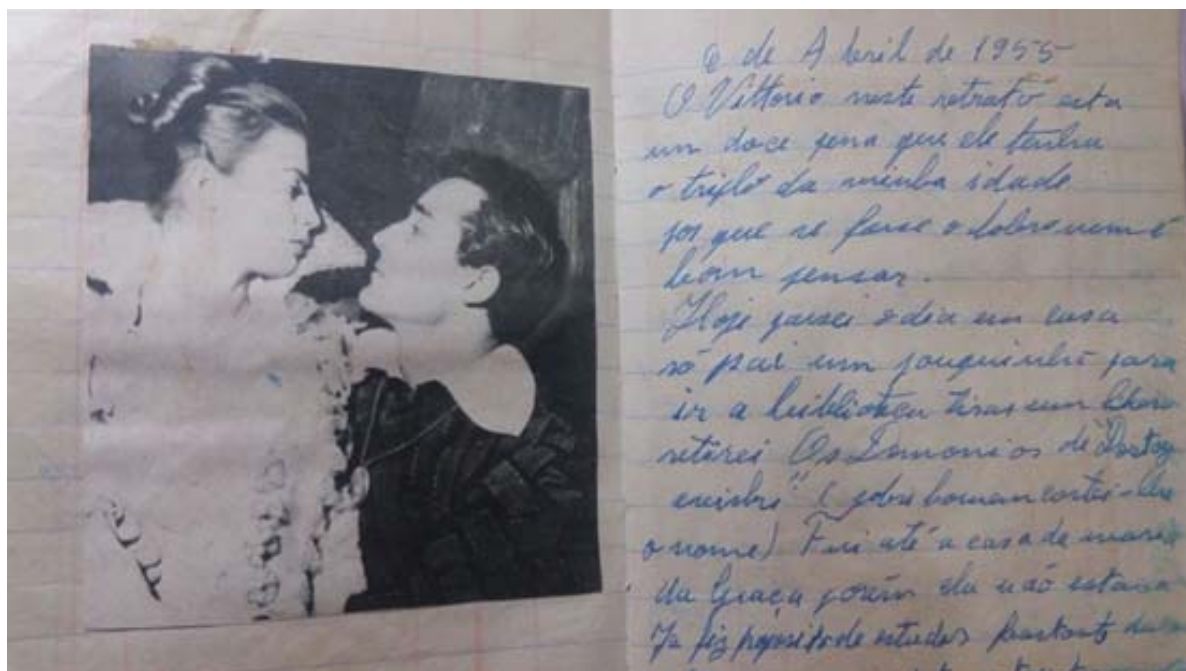 6 de Abril de 1955
O Vittorio neste retrato esta
um doce pena que ele tenha
o triplo da minha idade
por que se fosse o dobro nem é
bom pensar.
Hoje passei o dia em casa
só pai um pouquinho para
ir a biblioteca tirar um livro
retirei Os Demonios de "Dostoy
evisky" (pobre homem cortei-lhe
o nome) Fui até a casa de maria
da Graça porém ela não estava
Ja fiz proposito de estudar bastante